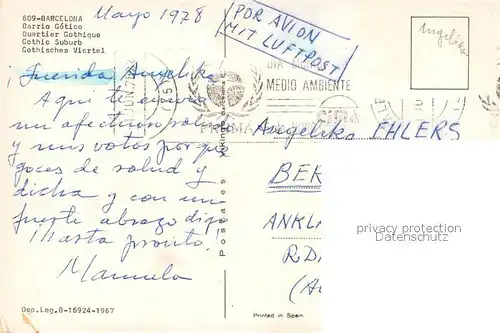 609-BARCELONA
Barrio Gótico
Quartier Gothique
Gothic Suburb
Gothisches Viertel
Mayo 1978
¡Querida Angelika!
Aqui te envio
un afectuoso saludo
y mis votos porque
goces de salud y
dicha y con un
fuerte abrazo digo
¡hasta pronto!
Manuela
Dep.Leg.B-16924-1967
Postales
POR AVION
MIT LUFTPOST
DIA
MEDIO AMBIENTE
Angelika
Angelika EHLERS
BER
ANKLA
R.D.
privacy protection
Datenschutz
Printed in Spain